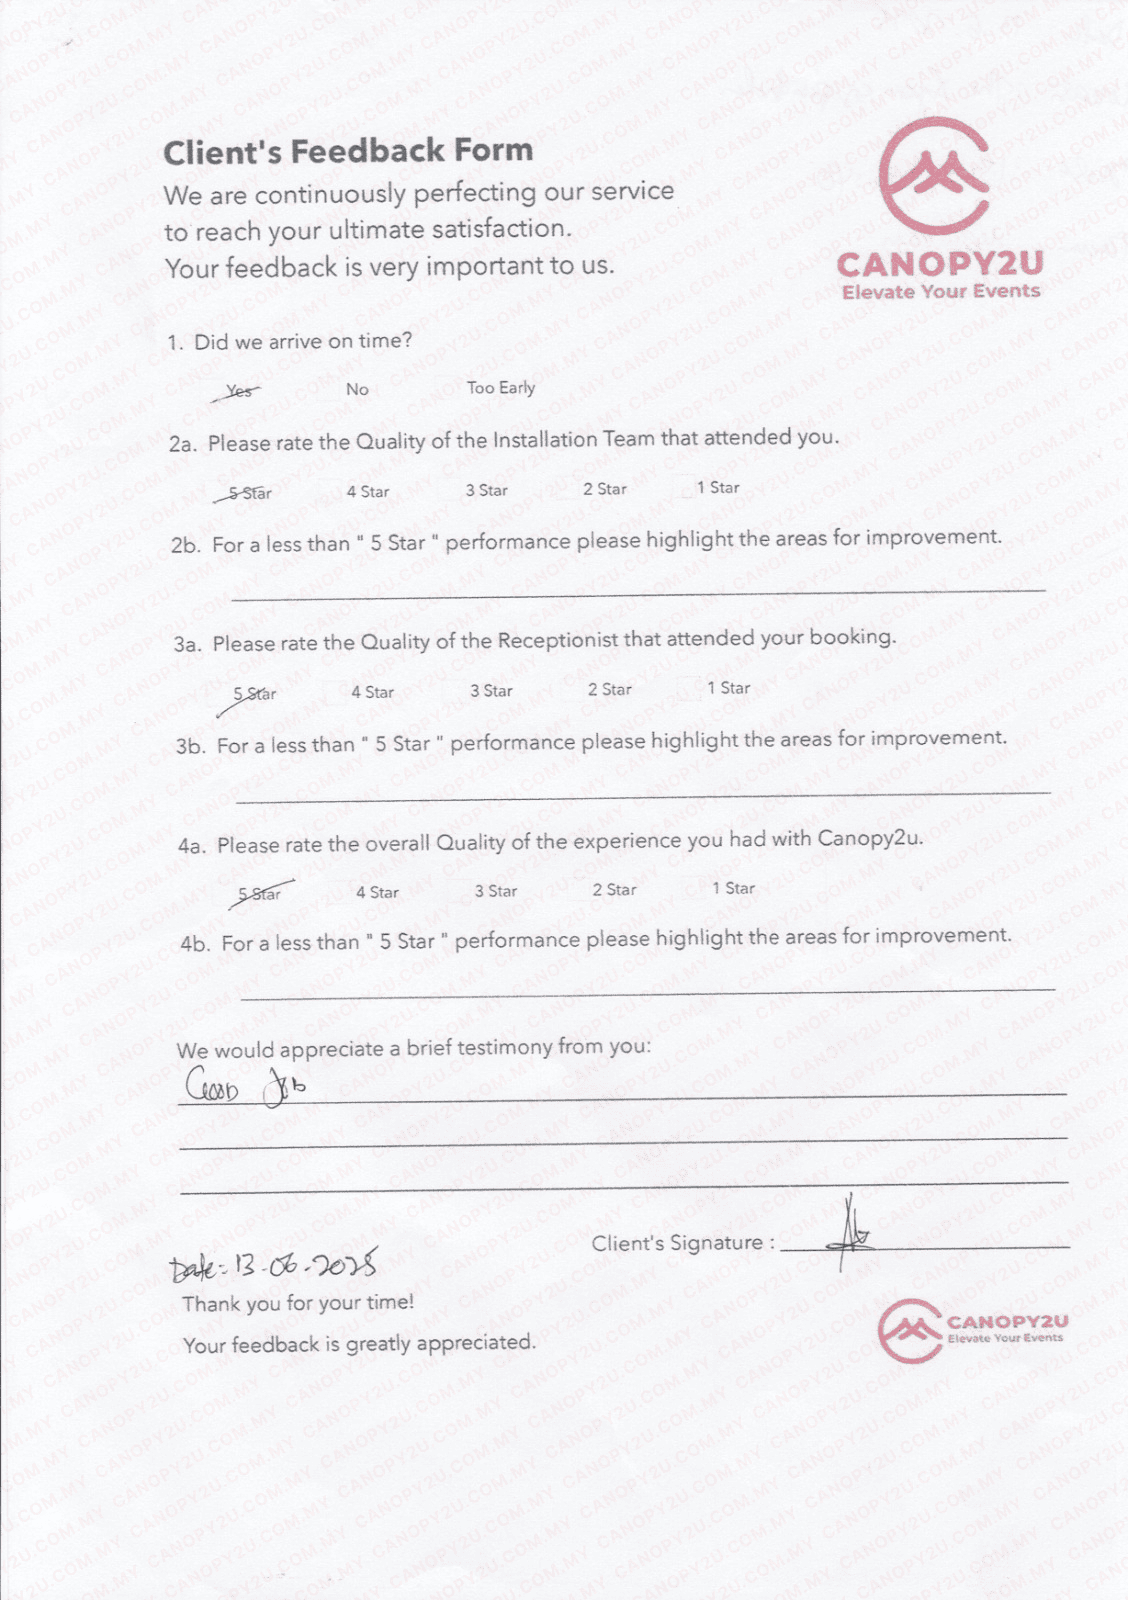 Client's Feedback Form
We are continuously perfecting our service
to reach your ultimate satisfaction.
Your feedback is very important to us.
CANOPY2U
Elevate Your Events
1. Did we arrive on time?
Yes No Too Early
2a. Please rate the Quality of the Installation Team that attended you.
5 Star 4 Star 3 Star 2 Star 1 Star
2b. For a less than " 5 Star " performance please highlight the areas for improvement.
3a. Please rate the Quality of the Receptionist that attended your booking.
5 Star 4 Star 3 Star 2 Star 1 Star
3b. For a less than " 5 Star " performance please highlight the areas for improvement.
4a. Please rate the overall Quality of the experience you had with Canopy2u.
5 Star 4 Star 3 Star 2 Star 1 Star
4b. For a less than " 5 Star " performance please highlight the areas for improvement.
We would appreciate a brief testimony from you:
Good Job
Client's Signature :
Date:- 13-06-2025
Thank you for your time!
Your feedback is greatly appreciated.
CANOPY2U
Elevate Your Events